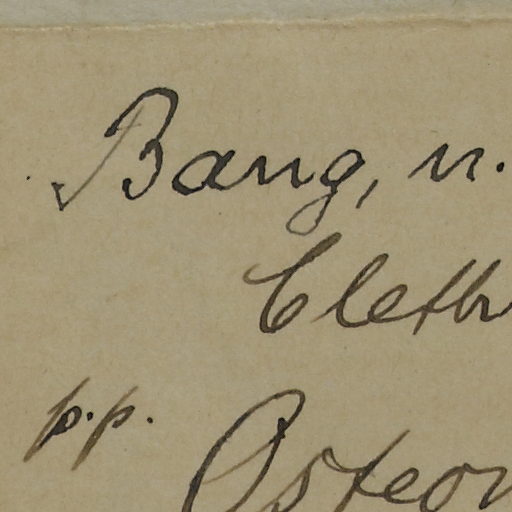 Bang, n.
Clethr
p.p.
Osteom